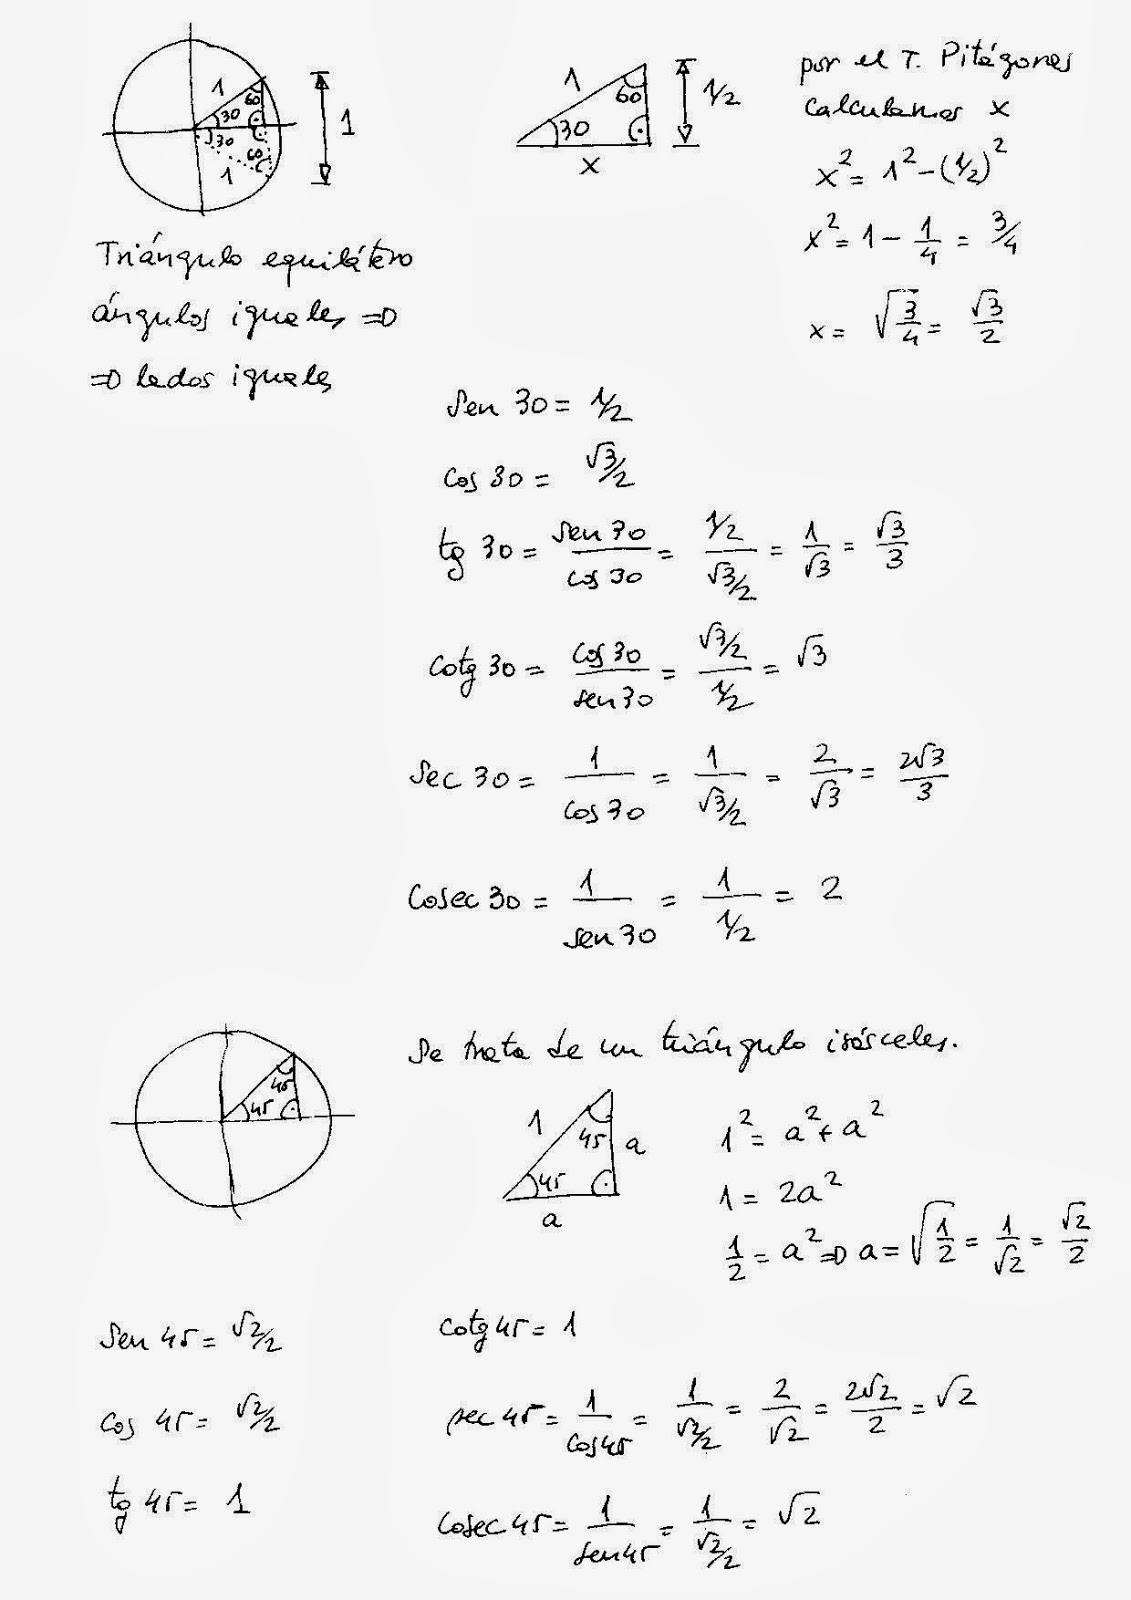 1
60
30
30
60
1
1
1
60
30
1/2
x
por el T. Pitágores
Calculamos x
x² = 1² - (1/2)²
x² = 1 - 1/4 = 3/4
x = √(3/4) = √3/2
Triángulo equilátero
ángulos iguales ⇒
⇒ lados iguales
Sen 30 = 1/2
Cos 30 = √3/2
tg 30 = sen 30/cos 30 = (1/2)/(√3/2) = 1/√3 = √3/3
Cotg 30 = cos 30/sen 30 = (√3/2)/(1/2) = √3
Sec 30 = 1/cos 30 = 1/(√3/2) = 2/√3 = 2√3/3
Cosec 30 = 1/sen 30 = 1/(1/2) = 2
45
45
Se trata de un triángulo isósceles.
1
45
45
a
a
1² = a² + a²
1 = 2a²
1/2 = a² ⇒ a = √(1/2) = 1/√2 = √2/2
Sen 45 = √2/2
Cos 45 = √2/2
tg 45 = 1
cotg 45 = 1
sec 45 = 1/cos 45 = 1/(√2/2) = 2/√2 = 2√2/2 = √2
Cosec 45 = 1/sen 45 = 1/(√2/2) = √2